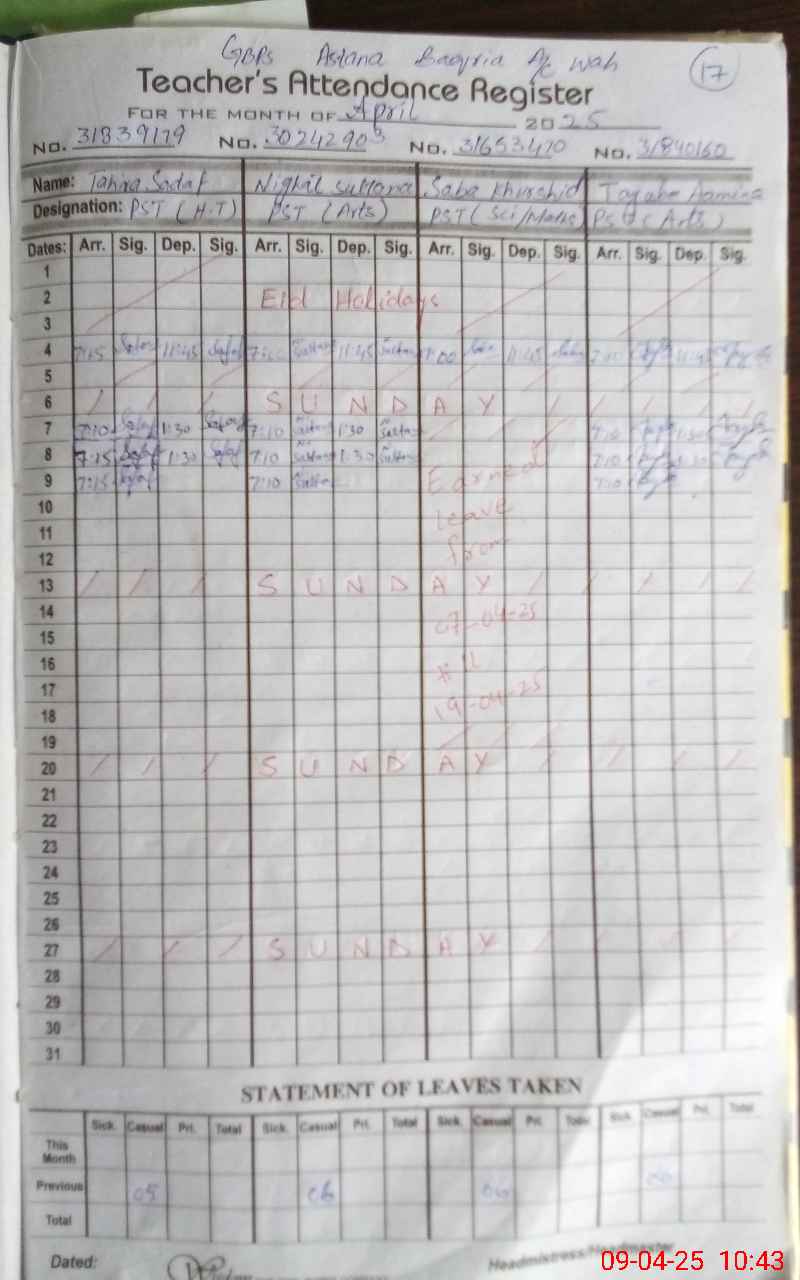 GBPS Astana Baqria A/c wah
17
Teacher's Attendance Register
FOR THE MONTH OF April 2025
No. 31839179 No. 30242903 No. 31653470 No. 31840160
Name: Tahira Sadaf Nighat Sultana Saba Khurshid Aamina
Designation: PST (H.T) PST (Arts) PST (Sci/Maths) PST (Arts)
Dates: Arr. Sig. Dep. Sig. Arr. Sig. Dep. Sig. Arr. Sig. Dep. Sig. Arr. Sig. Dep. Sig.
1
2 Eid Holidays
3
4 7:15 Sadaf 11:45 Sadaf Sultana 11:45 Sultana 7:00 Saba 11:45 Saba
5
6 / / / S U N D A Y / / / / /
7 7:10 Sadaf 1:30 Sadaf 7:10 Sultana 1:30 Sultana 7:10 1:30
8 7:15 Sadaf 1:30 Sadaf 7:10 Sultana 1:30 Sultana 7:10 1:30
9 7:15 Sadaf 7:10 Sultana Earned 7:10
10 leave
11
12 from
13 / / / S U N D A Y / / / / /
14 07-04-25
15
16 till
17 19-04-25
18
19
20 / / / S U N D A Y / / / / /
21
22
23
24
25
26
27 / / / S U N D A Y / / / / /
28
29
30
31
STATEMENT OF LEAVES TAKEN
Sick. Casual Pri. Total Sick. Casual Pri. Total Sick. Casual Pri. Total Sick. Casual Pri. Total
This Month
Previous 05 06
Total
Dated: Headmistress/Headmaster
09-04-25 10:43